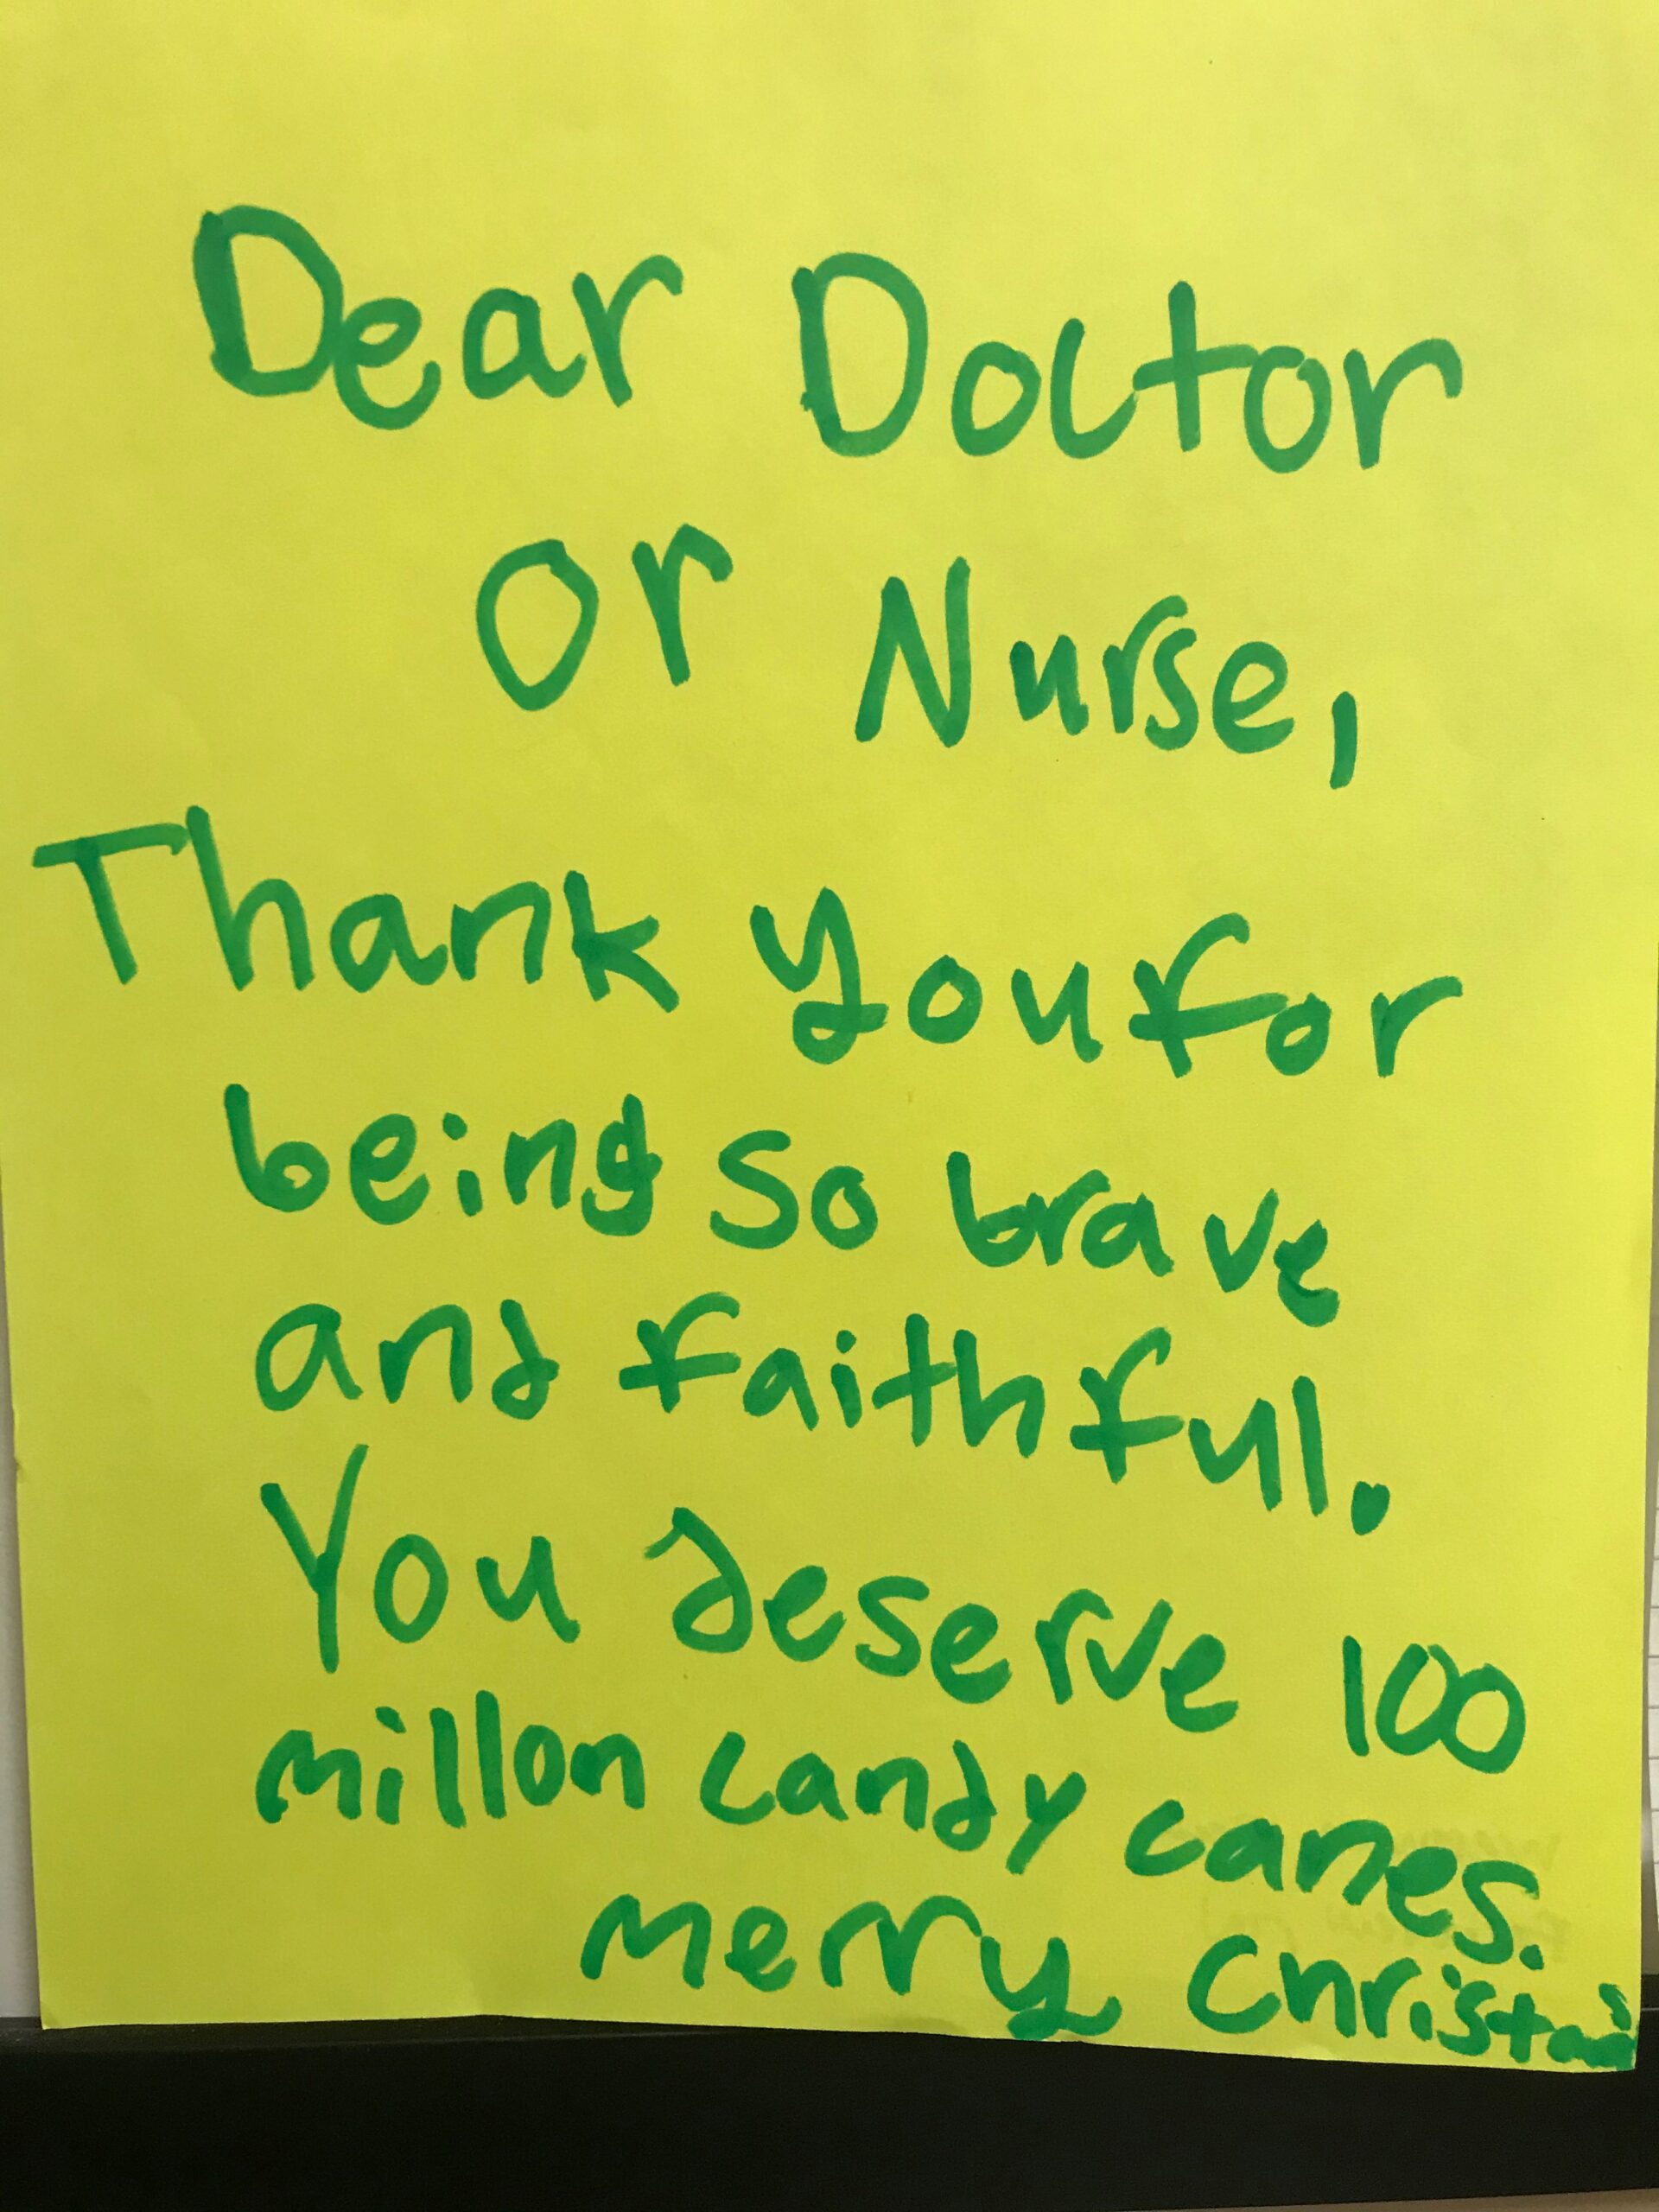 Dear Doctor
or Nurse,
Thank you for
being so brave
and faithful.
You deserve 100
millon candy canes.
merry Christmas